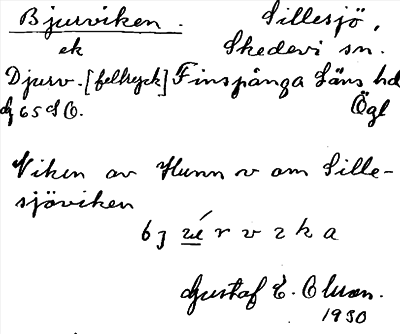 Bjurviken. Sillesjö,
ek Skedevi sn.
Djurv. [feltryck] Finspånga Läns hd
dj 65 SO. Ögl
Viken av Hunn v om Sille-
sjöviken
Gustaf E. Olsson.
1930